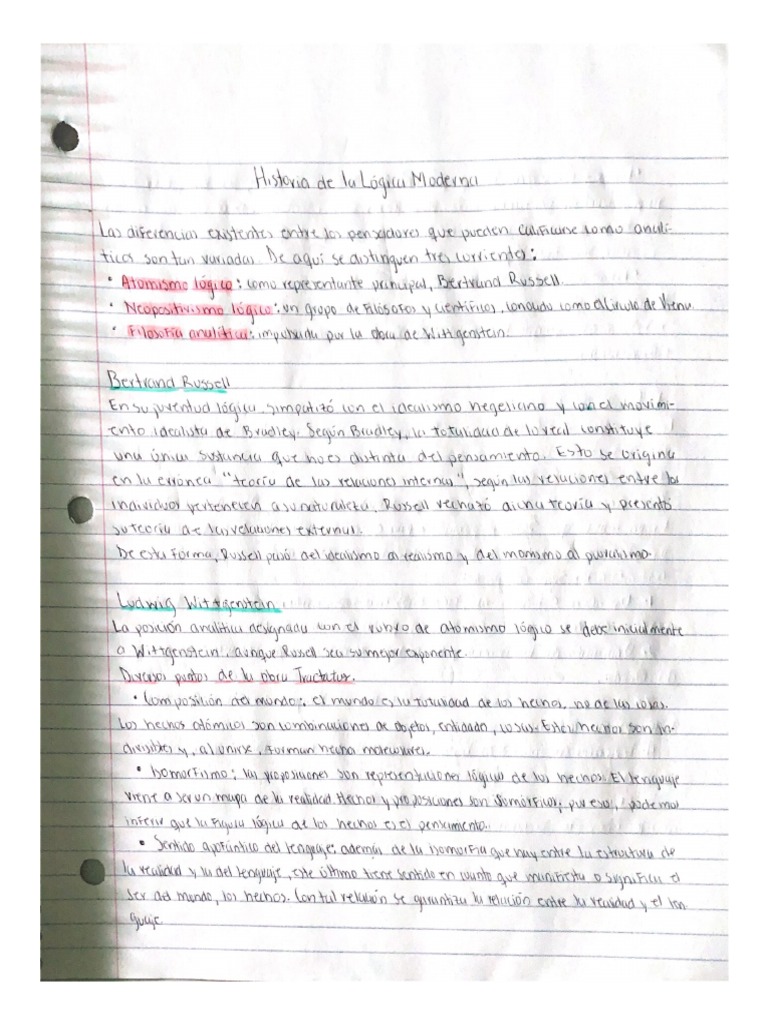 Historia de la Lógica Moderna
Las diferencias existentes entre los pensadores que pueden calificarse como analí-
ticos son tan variadas. De aquí se distinguen tres corrientes:
• Atomismo lógico: como representante principal, Bertrand Russell.
• Neopositivismo lógico: un grupo de filósofos y científicos, conocido como el Círculo de Viena.
• Filosofía analítica: impulsada por la obra de Wittgenstein.
Bertrand Russell
En su juventud lógica, simpatizó con el idealismo hegeliano y con el movimi-
ento idealista de Bradley. Según Bradley, la totalidad de lo real constituye
una única sustancia que no es distinta del pensamiento. Esto se origina
en la errónea "teoría de las relaciones internas", según las relaciones entre los
individuos pertenecen a su naturaleza. Russell rechazó dicha teoría y presentó
su teoría de las relaciones externas.
De esta forma, Russell pasó del idealismo al realismo y del monismo al pluralismo.
Ludwig Wittgenstein
La posición analítica designada con el rubro de atomismo lógico se debe inicialmente
a Wittgenstein, aunque Russell sea su mejor exponente.
Diversos puntos de la obra Tractatus.
• Composición del mundo: el mundo es la totalidad de los hechos, no de las cosas.
Los hechos atómicos son combinaciones de objetos, entidado, cosas. Estos hechos son in-
divisibles y, al unirse, forman hecho moleculares.
• Isomorfismo: las proposiciones son representaciones lógico de los hechos. El lenguaje
viene a ser un mapa de la realidad. Hechos y proposiciones son isomórficos; por eso, podemos
inferir que la figura lógica de los hechos es el pensamiento.
• Sentido apofántico del lenguaje: además de la isomorfía que hay entre la estructura de
la realidad y la del lenguaje, este último tiene sentido en cuanto que manifiesta o significa el
ser del mundo, los hechos. Con tal relación se garantiza la relación entre la realidad y el len-
guaje.